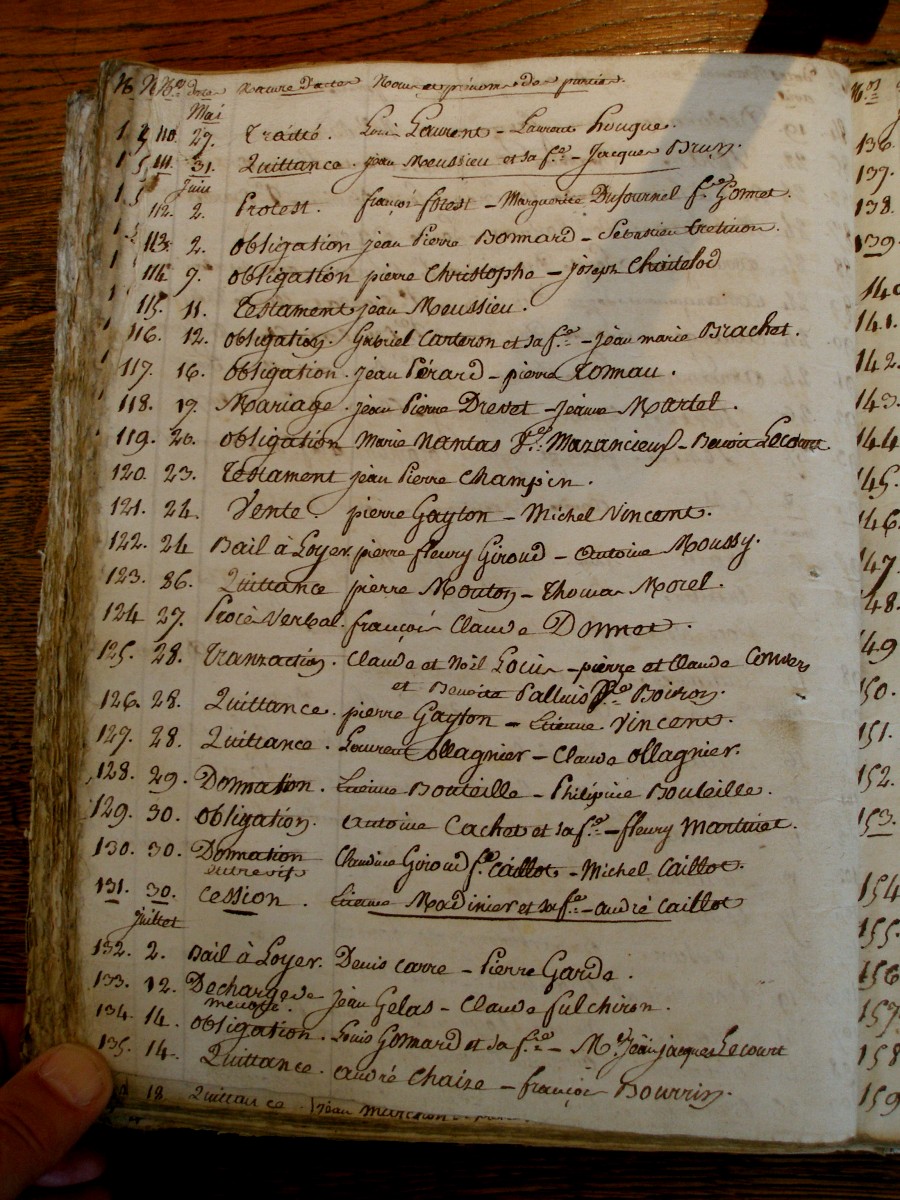 Nature d'actes Noms et prénoms des parties
Mai
110. 27. Traité. Louis Laurent - Laurent hougue.
111. 31. Quittance. jean Moussieu et sa fe. - Jacques Brun.
Juin
112. 2. Protest. françois forest - Marguerite Dufournel fe. Gonnet.
113. 2. obligation jean Pierre Bonnard - Sébastien
114 7. obligation pierre Christophe - joseph Chatelod
115. 11. Testament jean Moussieu.
116. 12. obligation. Gabriel Carteron et sa fe. - jean marie Brachet.
117. 16. obligation. jean Pérard - pierre Tonnau.
118. 19. Mariage. jean Pierre Drevet - jeanne Martel.
119. 20. obligation Marie Nantas Ve. Mazancieux - Benoit Lecourt
120. 23. Testament jean Pierre Champin.
121. 24. Vente. pierre Gayton - Michel Vincent.
122. 24 Bail à Loyer. pierre fleury Giroud - Antoine Moussy.
123. 26. Quittance pierre Mouton - Thomas Morel.
124 27. Procès Verbal. françois Claude Donnet.
125. 28. Tranzaction. Claude et Noël Louis - pierre et Claude Convers
et Benoite Palluis fe. Boiron.
126. 28. Quittance. pierre Gayton - Etienne Vincent.
127. 28. Quittance. Laurent Ollagnier - Claude Ollagnier.
128. 29. Donnation. Etienne Bouteille - Philipine Bouteille.
129. 30. obligation. Antoine Cachet et sa fe. - fleury Martinet.
130. 30. Donnation Claudine Giroud fe. Caillot - Michel Caillot.
entrevifs
131. 30. Cession. Etienne Madinier et sa fe. - andré Caillot
Juillet
132. 2. Bail à Loyer. Denis Carre - Pierre Garde.
133. 12. Decharge de Jean Gelas - Claude fulchiron.
134. 14. obligation. Louis Gonnard et sa fe. - Me. Jean jacques Lecourt
135. 14. Quittance. andré Chaize - françois Bourrin.
18. Quittance. Jean
136.
137.
138.
139.
140
141.
142.
143.
144
145.
146.
147.
148.
149
150.
151.
152.
153.
154
155.
156
157.
158
159